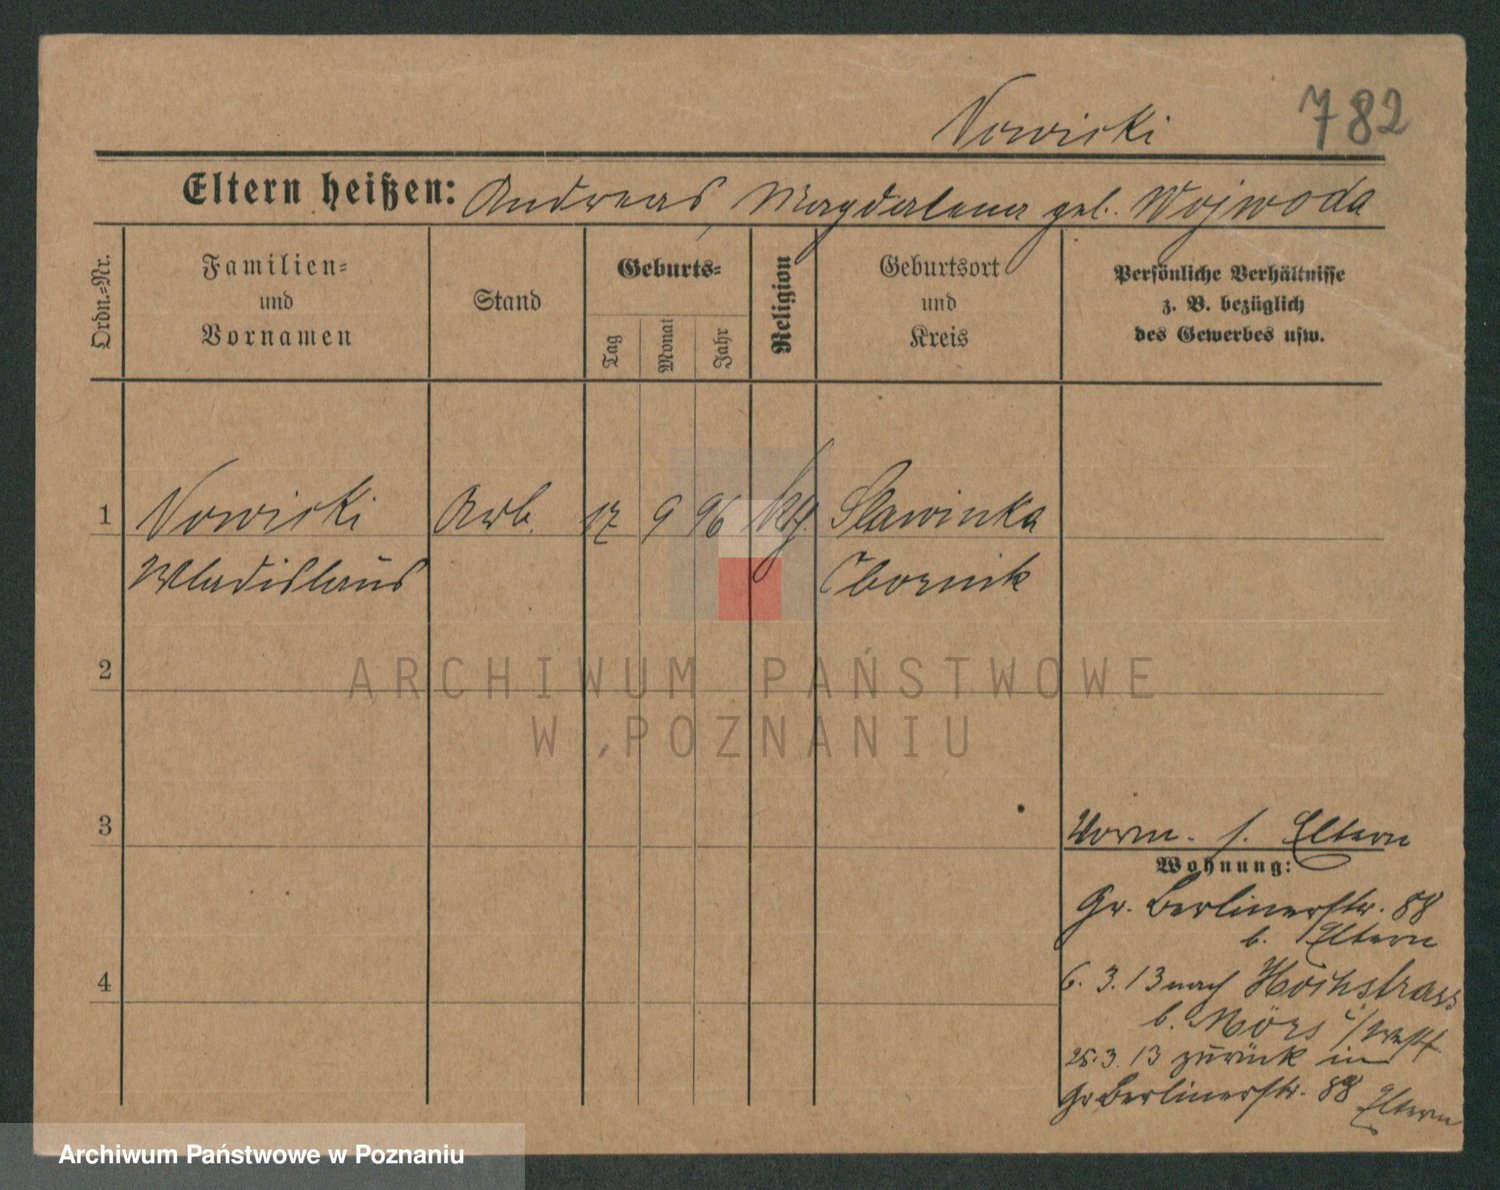 Nowicki 782
Eltern heißen: Andreas Magdalena geb. Wojwoda
Ordn.=Nr.
Familien=
und
Vornamen
Stand
Geburts=
Tag
Monat
Jahr
Religion
Geburtsort
und
Kreis
Persönliche Verhältnisse
z. B. bezüglich
des Gewerbes usw.
1 Nowicki Arb. 17 9 96 kg. Slawinka
Wladislaus Obornik
2
ARCHIWUM PAŃSTWOWE
W POZNANIU
3
Vorm. s. Eltern
Wohnung:
Gr. Berlinerstr. 88
b. Eltern
4
6. 3. 13 nach Hochstrass
b. Mörs i/Westf
25. 3. 13 zurück in
Gr Berlinerstr. 88 Eltern
Archiwum Państwowe w Poznaniu